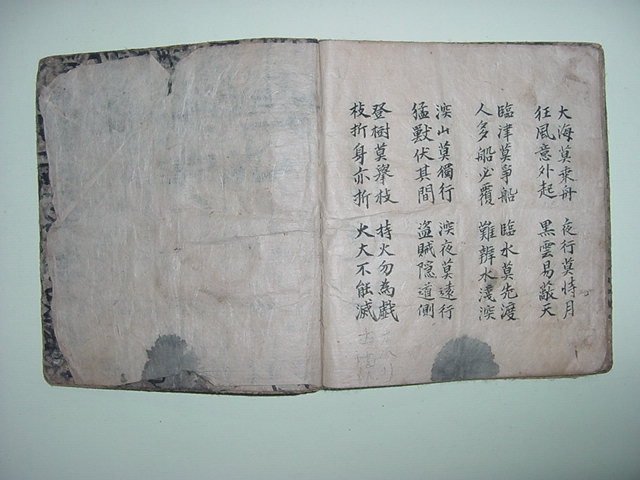 大海莫乘舟 夜行莫恃月
狂風意外起 黒雲易蔽天
臨津莫爭船 臨水莫先渡
人多船必覆 難辨水淺深
深山莫獨行 深夜莫遠行
猛獸伏其間 盜賊隱道側
登樹莫攀枝 持火勿為戲
枝折身亦折 火大不能滅